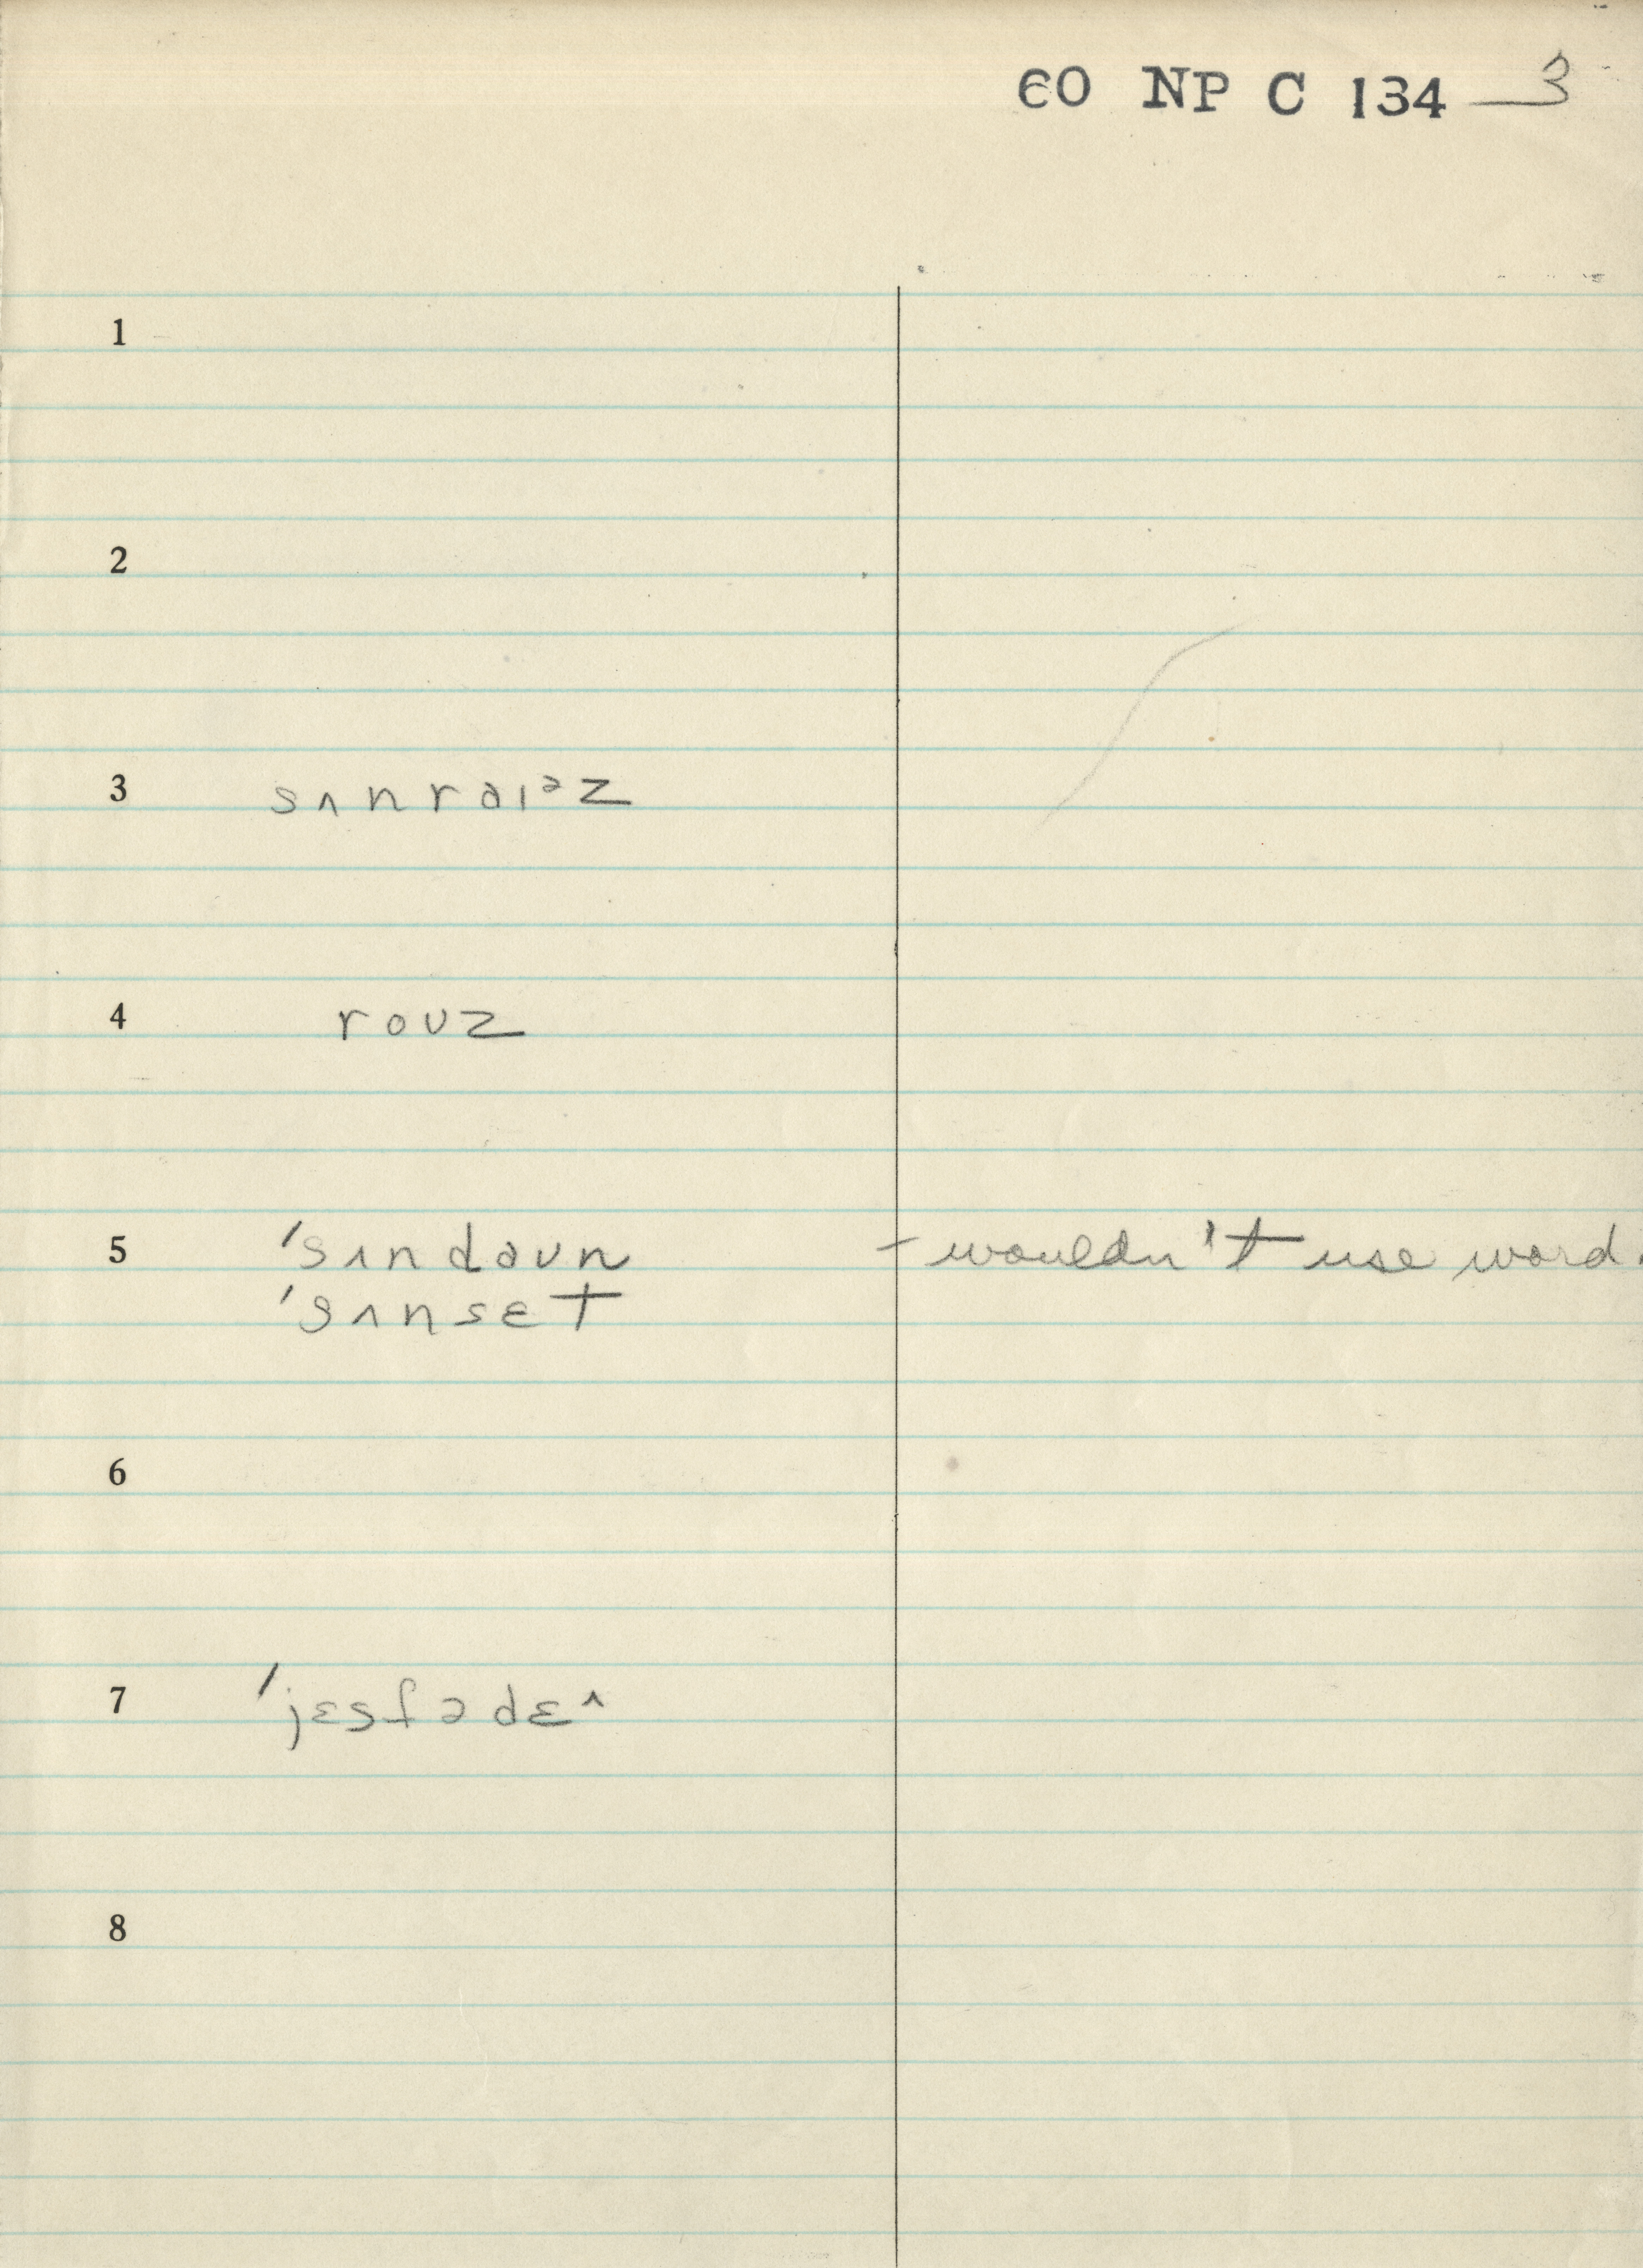 60 NP C 134 — 3
1
2
3 sʌnraɪᵊz
4 roʊz
5 'sʌndaʊn - wouldn't use word.
'sʌnsɛt
6
7 'jɛsfədɛ^
8